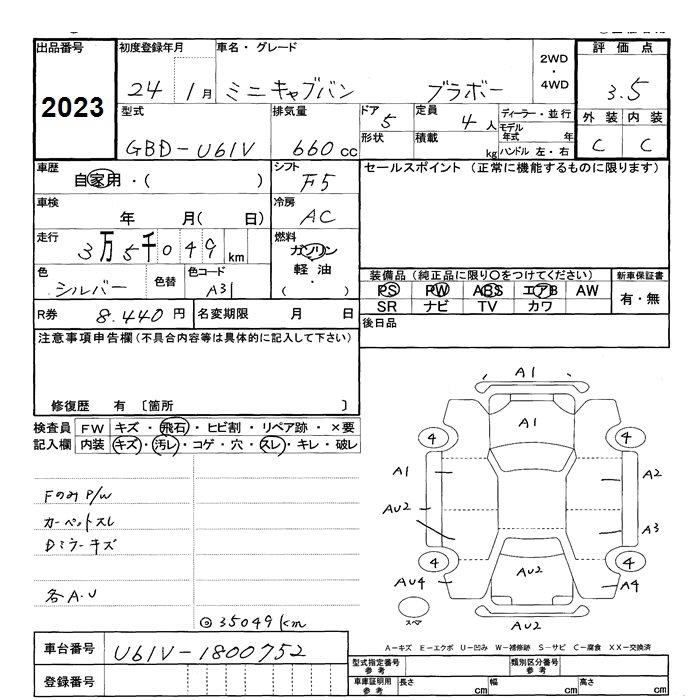 出品番号 初度登録年月 車名・グレード 2WD・4WD 評価点
2023 24 1月 ミニキャブバン ブラボー 3.5
型式 排気量 ドア 定員 ディーラー・並行 外装 内装
GBD-U61V 660cc 5 4人 モデル年式 年 C C
形状 積載 kg ハンドル 左・右
車歴 シフト セールスポイント (正常に機能するものに限ります)
自家用・( ) F5
車検 冷房
年 月( 日) AC
走行 燃料
3万5千049km ガソリン
軽油
・
( )
色 色替 色コード 装備品 (純正品に限り○をつけてください) 新車保証書
シルバー A31 PS PW ABS エアB AW 有・無
SR ナビ TV カワ
R券 8.440円 名変期限 月 日 後日品
注意事項申告欄(不具合内容等は具体的に記入して下さい)
修復歴 有 〔箇所 〕
検査員 FW キズ・飛石・ヒビ割・リペア跡・×要
記入欄 内装 キズ・汚レ・コゲ・穴・スレ・キレ・破レ
Fのみ P/W
カーペットスレ
Dミラーキズ
各A.U
◎35049km
A1
A1
4 4
A1 A2
AU2
A3
4 4
AU4 AU2 A4
スペア AU2
A-キズ E-エクボ U-凹み W-補修跡 S-サビ C-腐食 XX-交換済
車台番号 U61V-1800752
型式指定番号 参考 類別区分番号 参考
登録番号
車庫証明用 参考 長さ cm 幅 cm 高さ cm